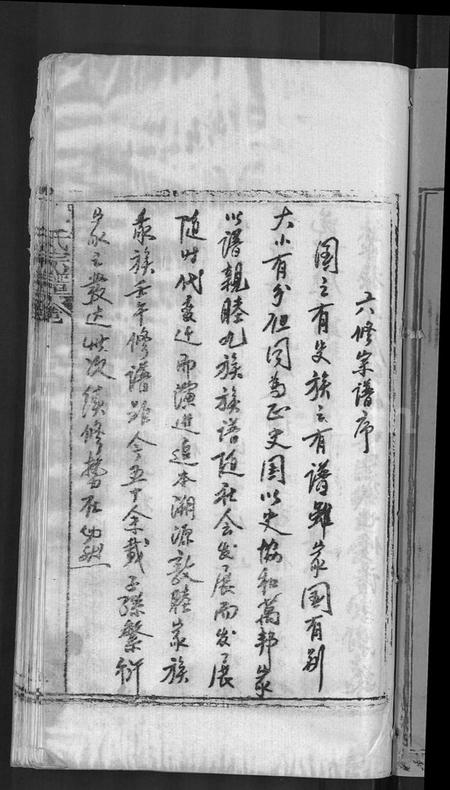 六修宗譜序
國之有史族之有譜雖家國有别
大小有分但同为正史国以史協和萬邦家
以譜親睦九族族譜随社会发展而发展
随时代变迁而演進追本溯源敦睦家族
我族壬午修譜距今五十余載子孫繁衍
家之發达此次续修势在必然